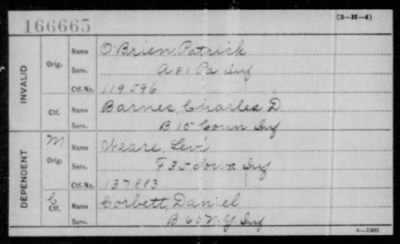 166665
(3-H-4)
INVALID
Orig.
Name O'Brien, Patrick
Serv. A 81 Pa Inf
Ctf. No. 119596
Ctf.
Name Barnes, Charles D.
Serv. B 15 Conn Inf
DEPENDENT
M
Orig.
Name Neare, Levi
Serv. F 35 Iowa Inf
Ctf. No. 137883
Ctf.
Name Corbett, Daniel
Serv. B 60 N.Y Inf